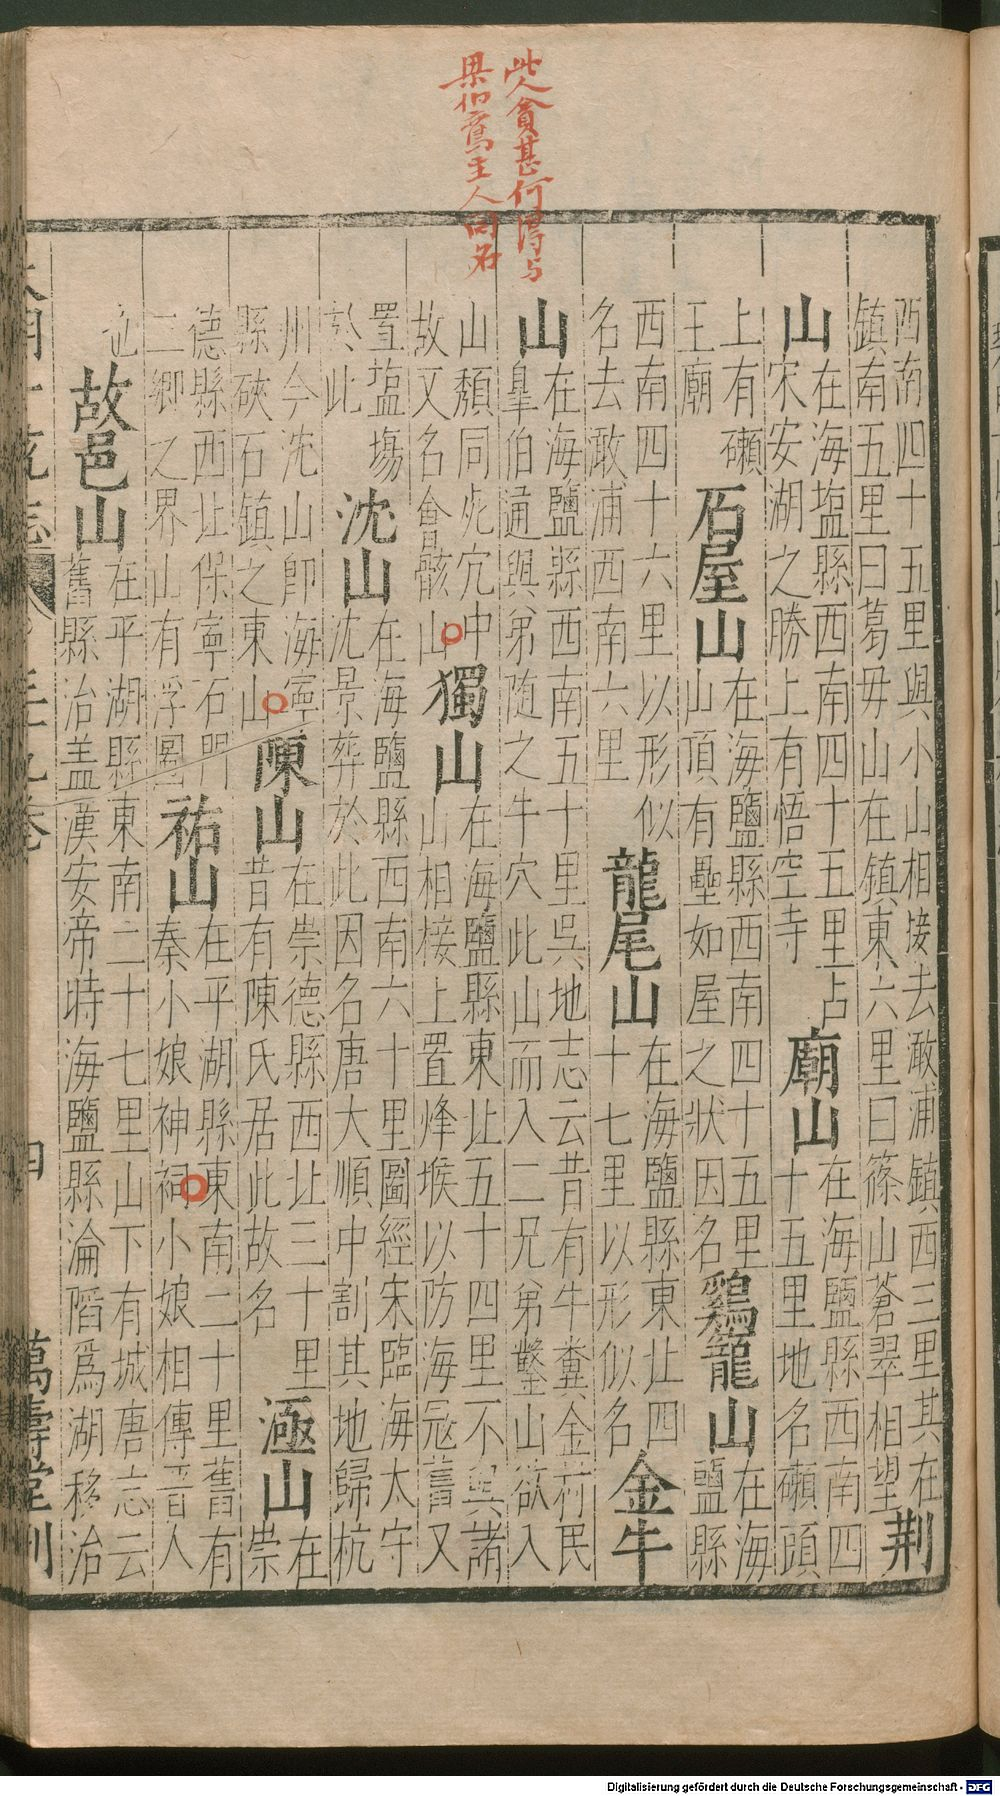 此人貪甚何得与
梁伯鸞主人同名
西南四十五里與小山相接去澉浦鎮西三里其在
鎮南五里曰葛毋山在鎮東六里曰篠山蒼翠相望
荆
山
在海塩縣西南四十五里占
宋安湖之勝上有悟空寺
廟山
在海鹽縣西南四
十五里地名磧頭
上有磧
王廟
石屋山
在海鹽縣西南四十五里
山頂有壘如屋之狀因名
鷄籠山
在海
鹽縣
西南四十六里以形似
名去敢浦西南六里
龍尾山
在海鹽縣東北四
十七里以形似名
金牛
山
在海鹽縣西南五十里吳地志云昔有牛糞金村民
臯伯通與弟随之牛穴此山而入二兄弟鑿山欲入
山頽同死穴中
故又名會骸山
獨山
在海鹽縣東北五十四里不與諸
山相接上置烽堠以防海冦舊又
置塩塲
於此
沈山
在海鹽縣西南六十里圖經宋臨海太守
沈景葬於此因名唐大順中割其地歸杭
州今沈山卽海寧
縣硤石鎮之東山
陳山
在崇德縣西北三十里
昔有陳氏居此故名
極山
在
崇
德縣西北保寧石門
二鄉之界山有浮圖
祐山
在平湖縣東南二十里舊有
秦小娘神祠小娘相傳晋人
也
故邑山
在平湖縣東南二十七里山下有城唐志云
舊縣治盖漢安帝時海鹽縣淪䧟爲湖移治
四
萬壽堂刊
Digitalisierung gefördert durch die Deutsche Forschungsgemeinschaft - DFG